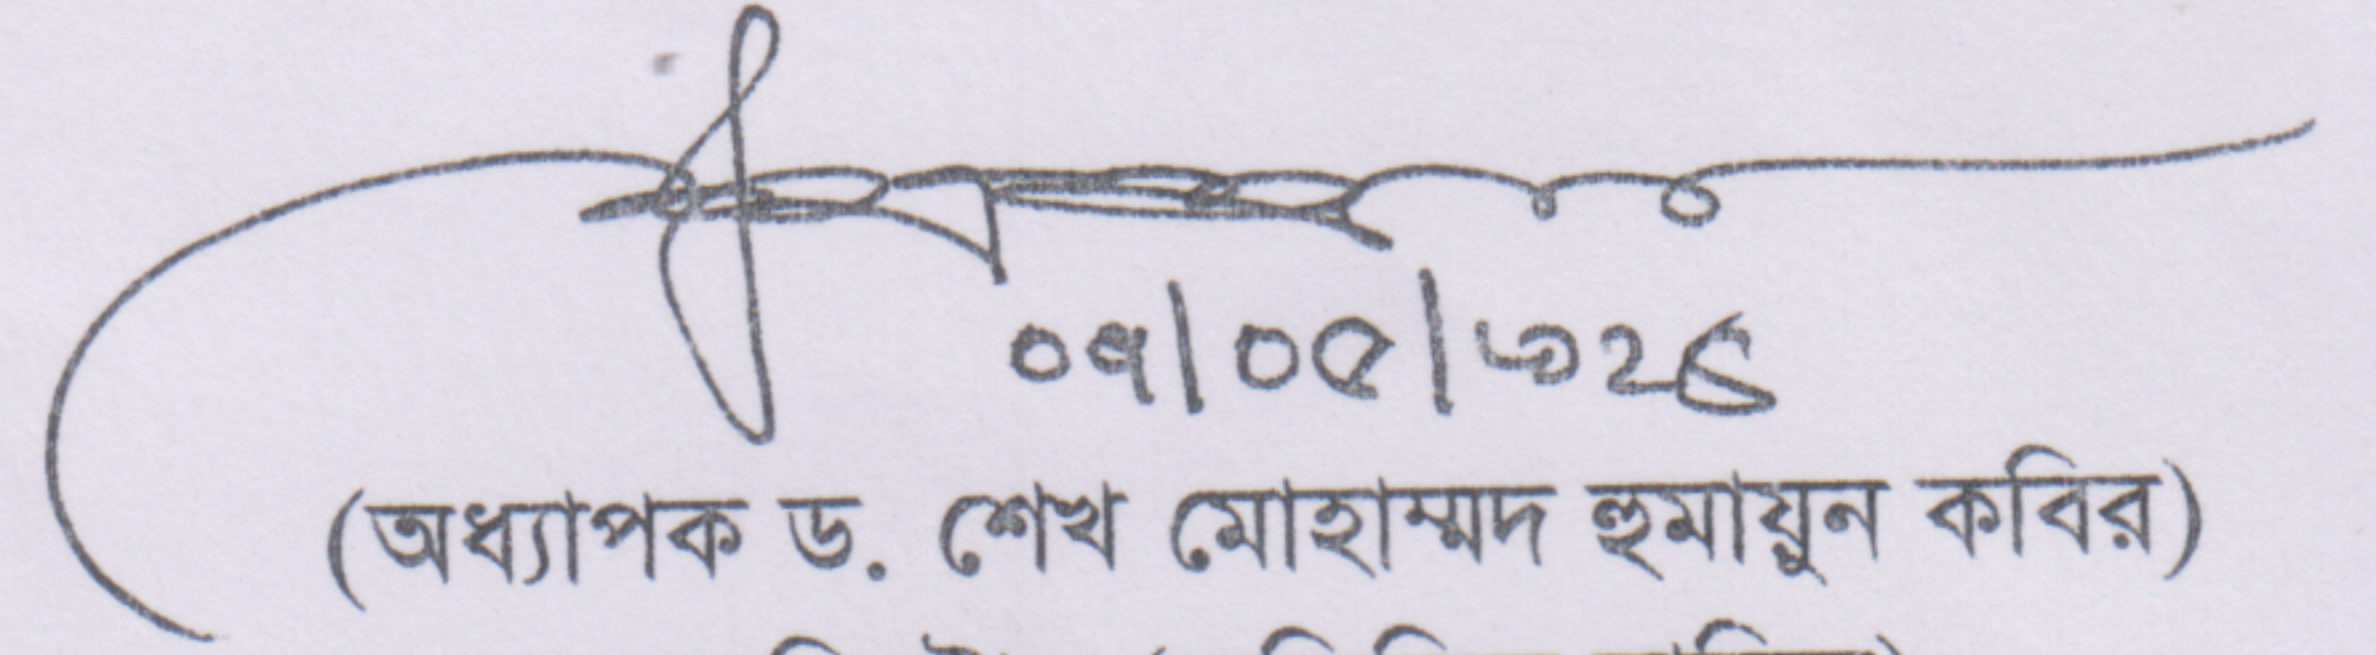 ০৭/০৫/২০২৬
(অধ্যাপক ড. শেখ মোহাম্মদ হুমায়ুন কবির)